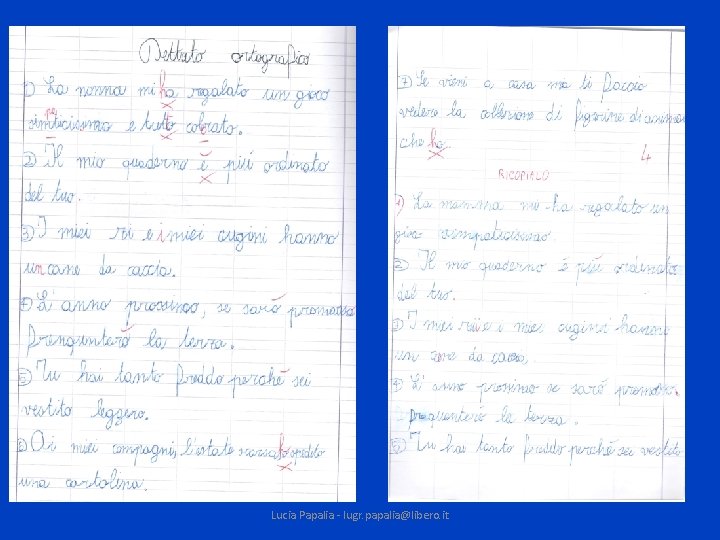 Dettato ortografico
1) La nonna mi ha regalato un gioco
simticissimo e tutto colorato.
2) Il mio quaderno è più ordinato
del tuo.
3) I miei zii e i miei cugini hanno
un cane da caccia.
4) L'anno prossimo, se sarò promosso
frenquenterò la terza.
5) Tu hai tanto freddo perché sei
vestito leggero.
6) Oi miei compagni, l'estate scorsa ho spedito
una cartolina.
7) Se vieni a casa ma ti faccio
vedere la collezione di figurine di animali
che ho.
4
RICOPIALO
1) La mamma me ha regalato un
simpaticissimo
2) Il mio quaderno è più ordinato
del tuo.
3) I miei zii e i miei cugini hanno
un cane da caccia.
4) L'anno prossimo se sarò promosso.
frequenterò la terza.
5) Tu hai tanto freddo perché sei vestito
Lucia Papalia - lugr.papalia@libero.it